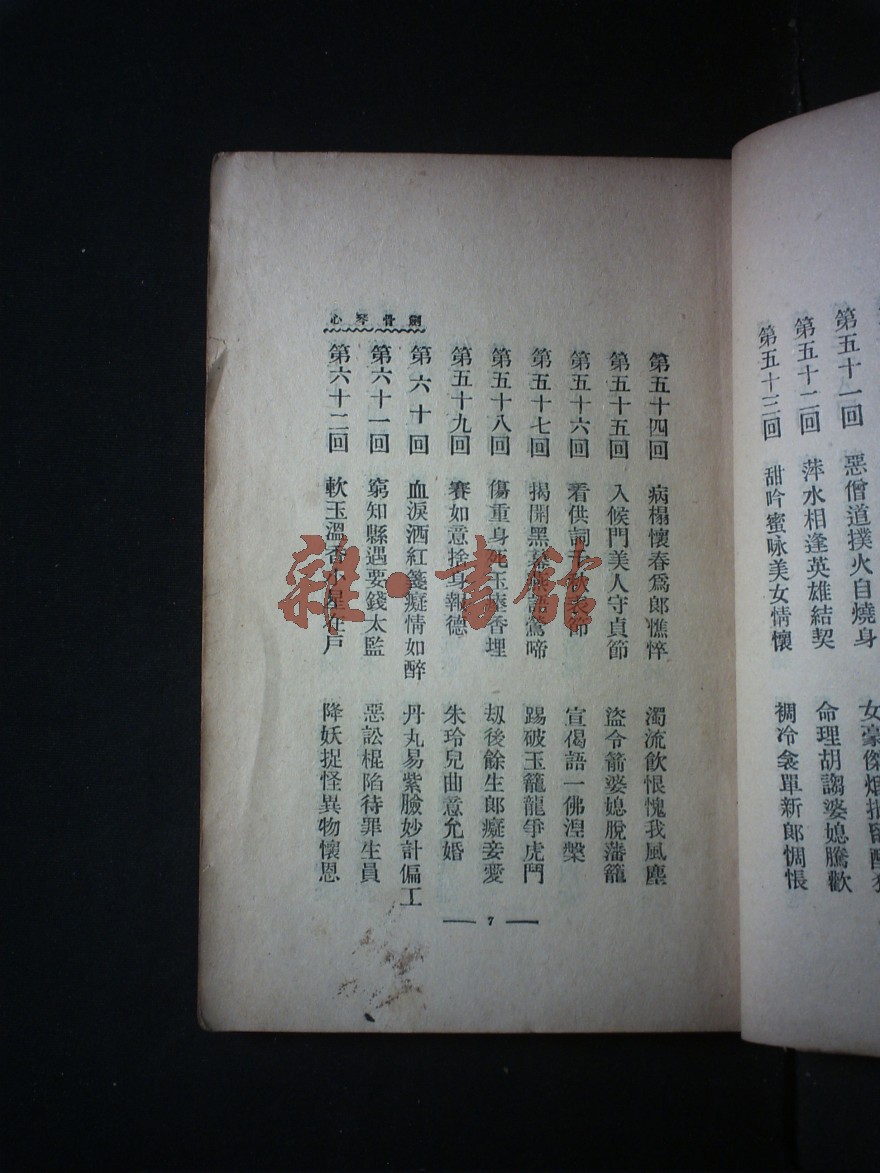 第五十一回　惡僧道撲火自燒身　女豪傑
第五十二回　萍水相逢英雄結契　命理胡謅婆媳騰歡
第五十三回　甜吟蜜咏美女情懷　裯冷衾單新郎惆悵
第五十四回　病榻懷春爲郎憔悴　濁流飲恨愧我風塵
第五十五回　入候門美人守貞節　盜令箭婆媳脫藩籠
第五十六回　看供詞千秋表節　宣偈語一佛涅槃
第五十七回　揭開黑幕　啼　踢破玉籠龍爭虎鬥
第五十八回　傷重身死玉瘞香埋　刼後餘生郎癡妾愛
第五十九回　賽如意捨身報德　朱玲兒曲意允婚
第六十回　血淚洒紅箋癡情如醉　丹丸易紫臉妙計偏工
第六十一回　窮知縣遇要錢太監　惡訟棍陷待罪生員
第六十二回　軟玉溫香小星在戶　降妖捉怪異物懷恩
劍骨琴心
7
雜·書館